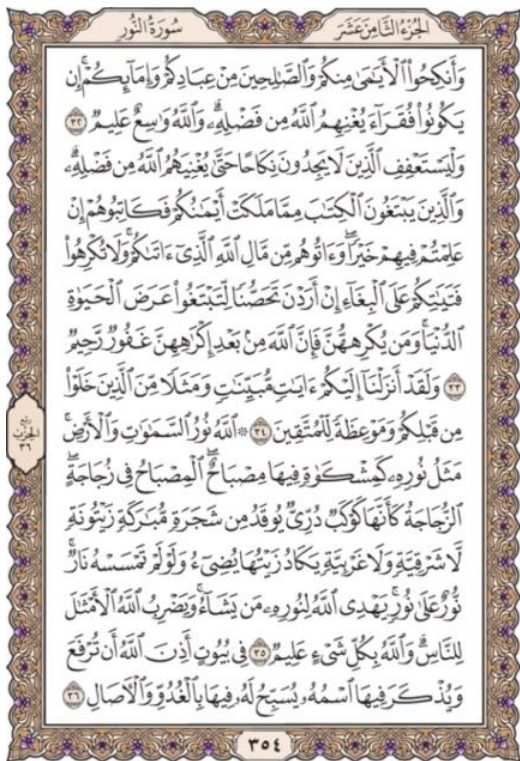 الجُزْءُ الثَّامِنَ عَشَرَ
سُورَةُ النُّورِ
وَأَنكِحُوا۟ ٱلْأَيَـٰمَىٰ مِنكُمْ وَٱلصَّـٰلِحِينَ مِنْ عِبَادِكُمْ وَإِمَآئِكُمْ ۚ إِن
يَكُونُوا۟ فُقَرَآءَ يُغْنِهِمُ ٱللَّهُ مِن فَضْلِهِۦ ۗ وَٱللَّهُ وَٰسِعٌ عَلِيمٌ ٣٢
وَلْيَسْتَعْفِفِ ٱلَّذِينَ لَا يَجِدُونَ نِكَاحًا حَتَّىٰ يُغْنِيَهُمُ ٱللَّهُ مِن فَضْلِهِۦ ۗ
وَٱلَّذِينَ يَبْتَغُونَ ٱلْكِتَـٰبَ مِمَّا مَلَكَتْ أَيْمَـٰنُكُمْ فَكَاتِبُوهُمْ إِنْ
عَلِمْتُمْ فِيهِمْ خَيْرًا ۖ وَءَاتُوهُم مِّن مَّالِ ٱللَّهِ ٱلَّذِىٓ ءَاتَىٰكُمْ ۚ وَلَا تُكْرِهُوا۟
فَتَيَـٰتِكُمْ عَلَى ٱلْبِغَآءِ إِنْ أَرَدْنَ تَحَصُّنًا لِّتَبْتَغُوا۟ عَرَضَ ٱلْحَيَوٰةِ
ٱلدُّنْيَا ۚ وَمَن يُكْرِههُّنَّ فَإِنَّ ٱللَّهَ مِنۢ بَعْدِ إِكْرَٰهِهِنَّ غَفُورٌ رَّحِيمٌ
٣٣ وَلَقَدْ أَنزَلْنَآ إِلَيْكُمْ ءَايَـٰتٍ مُّبَيِّنَـٰتٍ وَمَثَلًا مِّنَ ٱلَّذِينَ خَلَوْا۟
مِن قَبْلِكُمْ وَمَوْعِظَةً لِّلْمُتَّقِينَ ٣٤ ۞ ٱللَّهُ نُورُ ٱلسَّمَـٰوَٰتِ وَٱلْأَرْضِ ۚ
ربع
الحزب
٣٦
مَثَلُ نُورِهِۦ كَمِشْكَوٰةٍ فِيهَا مِصْبَاحٌ ۖ ٱلْمِصْبَاحُ فِى زُجَاجَةٍ ۖ
ٱلزُّجَاجَةُ كَأَنَّهَا كَوْكَبٌ دُرِّىٌّ يُوقَدُ مِن شَجَرَةٍ مُّبَـٰرَكَةٍ زَيْتُونَةٍ
لَّا شَرْقِيَّةٍ وَلَا غَرْبِيَّةٍ يَكَادُ زَيْتُهَا يُضِىٓءُ وَلَوْ لَمْ تَمْسَسْهُ نَارٌ ۚ
نُّورٌ عَلَىٰ نُورٍ ۗ يَهْدِى ٱللَّهُ لِنُورِهِۦ مَن يَشَآءُ ۚ وَيَضْرِبُ ٱللَّهُ ٱلْأَمْثَـٰلَ
لِلنَّاسِ ۗ وَٱللَّهُ بِكُلِّ شَىْءٍ عَلِيمٌ ٣٥ فِى بُيُوتٍ أَذِنَ ٱللَّهُ أَن تُرْفَعَ
وَيُذْكَرَ فِيهَا ٱسْمُهُۥ يُسَبِّحُ لَهُۥ فِيهَا بِٱلْغُدُوِّ وَٱلْـَٔاصَالِ ٣٦
٣٥٤